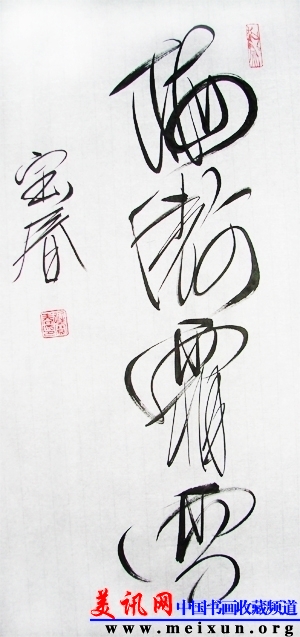 梅傲霜雪
宝春
美讯网 中国书画收藏频道
www.meixun.org